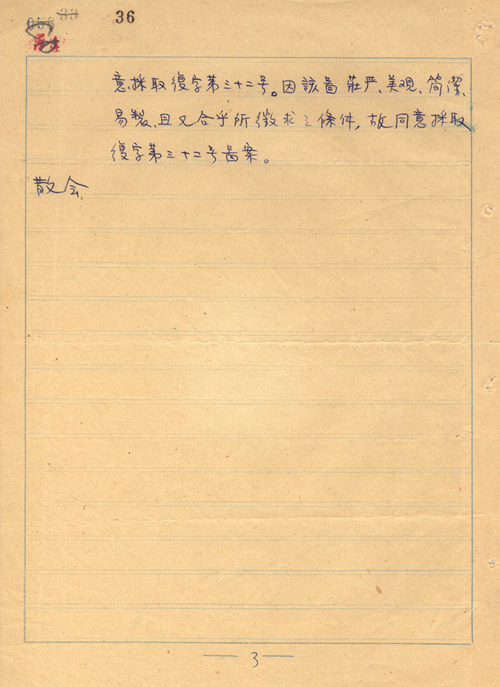 33
36
意採取復字第三十二号。因該啚莊严、美观、简潔、
易製、且又合乎所徵求之條件,故同意採取
復字第三十二号啚案。
散会
3